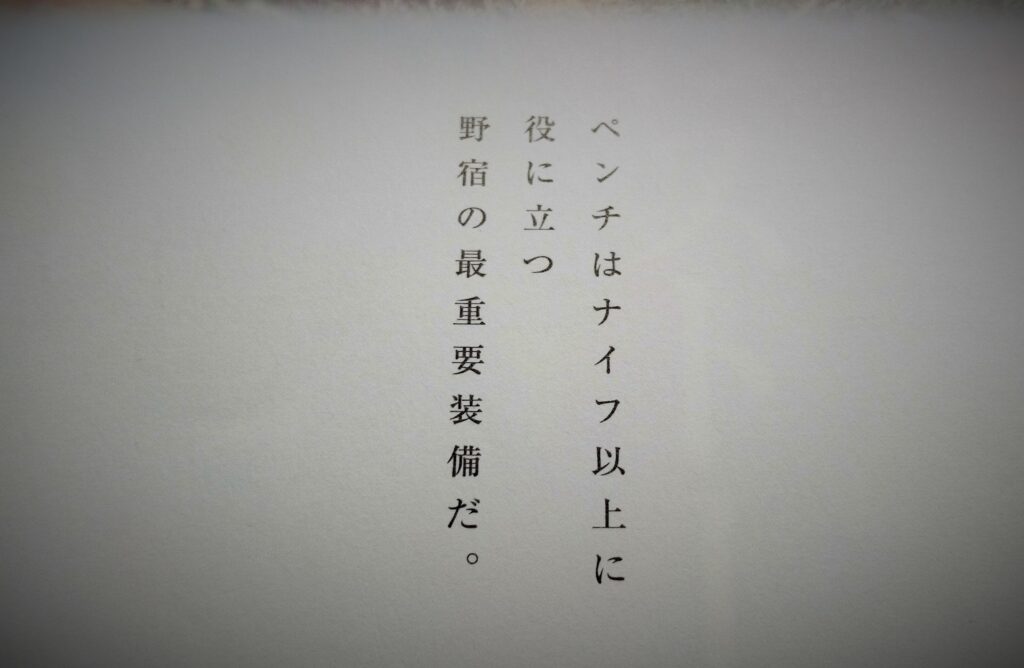 ペンチはナイフ以上に
役に立つ
野宿の最重要装備だ。